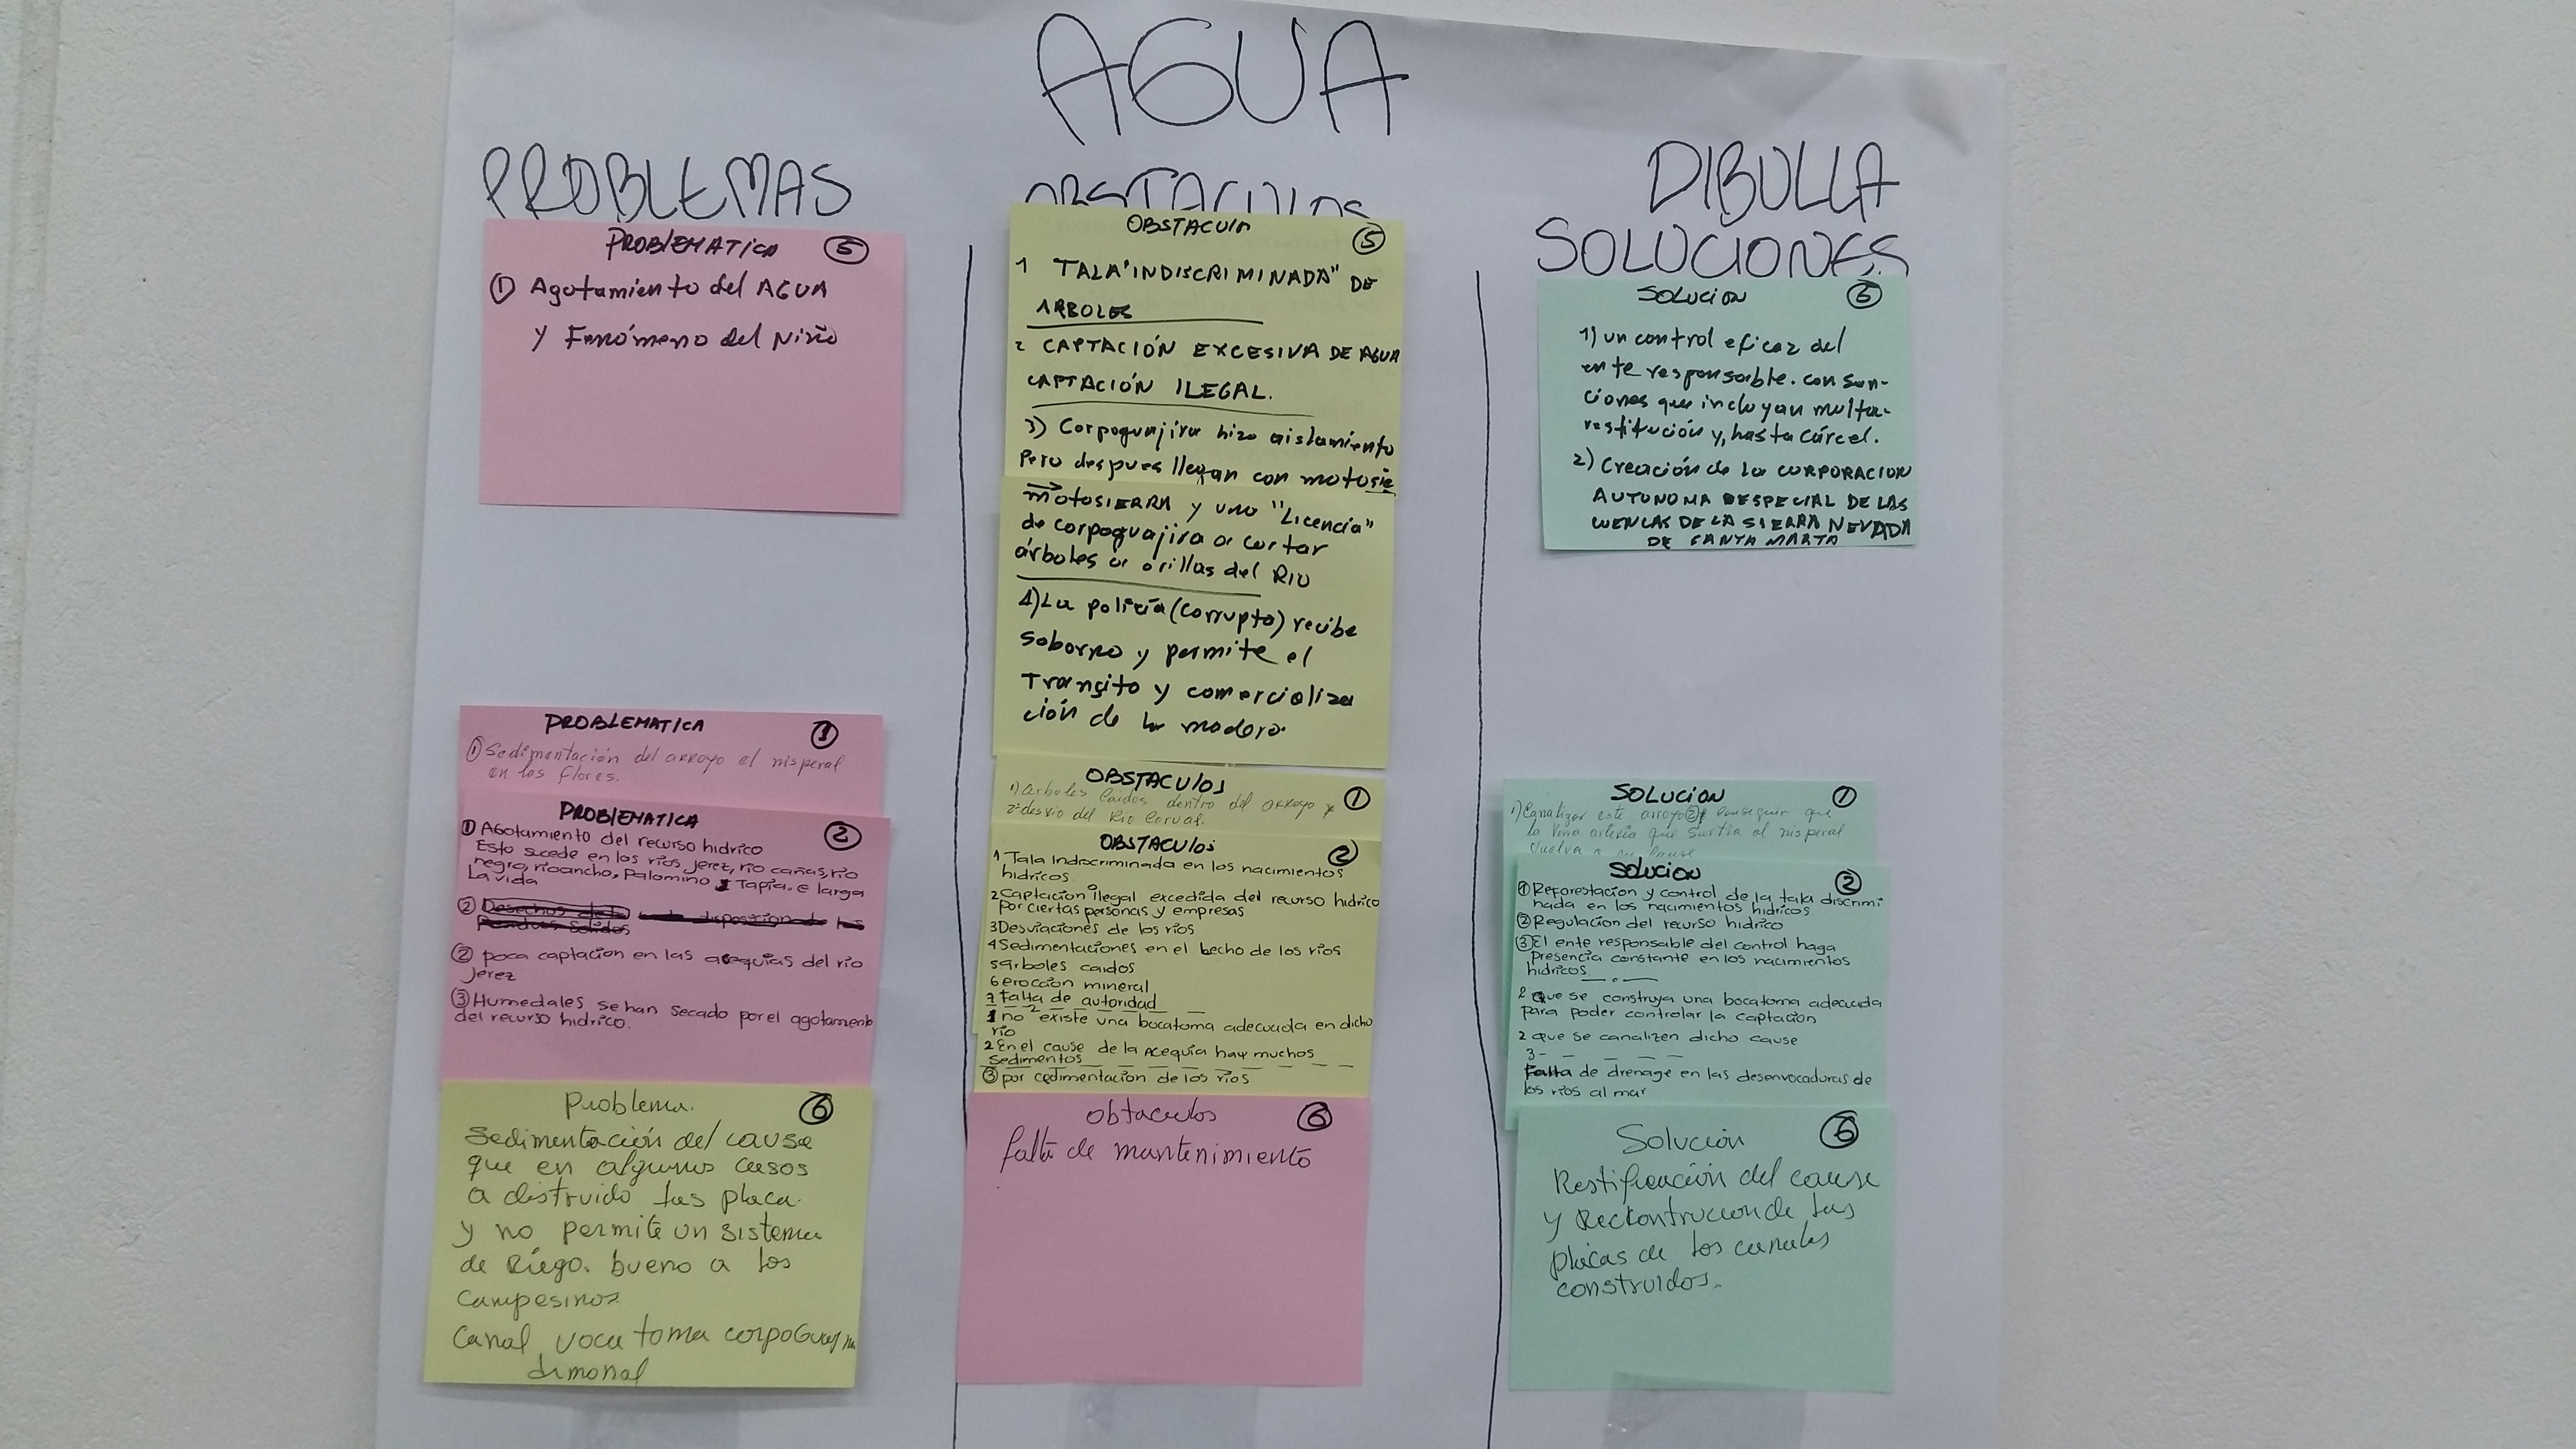 AGUA
PROBLEMAS
PROBLEMATICA 5
① Agotamiento del AGUA
y Fenómeno del Niño
PROBLEMATICA 1
① Sedimentación del arroyo el nisperal
en las flores.
PROBLEMATICA 2
① Agotamiento del recurso hidrico
Esto sucede en los ríos, jerez, rio cañas, rio
negro, rioancho, Palomino y Tapia. e larga
La vida
②
Residuos Solidos
② poca captacion en las acequias del rio
Jerez
③ Humedales se han secado por el agotamento
del recurso hidrico.
Problema. 6
Sedimentación del cause
que en algunos casos
a distruido las placa.
y no permite un sistema
de Riego. bueno a los
campesinos
Canal voca toma
OBSTACULOS
OBSTACULO 5
1 TALA "INDISCRIMINADA" DE
ARBOLES
2 CAPTACIÓN EXCESIVA DE AGUA
CAPTACIÓN ILEGAL.
3) Corpoguajira hizo aislamiento
Pero despues llegan con motosie
motosierra y una "Licencia"
de corpoguajira a cortar
árboles a orillas del RIO
4) La policía (corrupta) recibe
soborno y permite el
Transito y comercializa
ción de la madera.
OBSTACULOS 1
1) arboles caidos dentro del arroyo y
2º desvio del Rio
OBSTACULOS 2
1 Tala Indiscriminada en los nacimientos
hidricos.
2 Captacion ilegal excedida del recurso hidrico
por ciertas personas y empresas
3 Desviaciones de los ríos
4 Sedimentaciones en el lecho de los rios
5 arboles caidos
6 eroccion mineral
7 Falta de autoridad
1 no existe una bocatoma adecuada en dicho
rio
2 En el cause de la acequia hay muchos
sedimentos
③ por cedimentacion de los ríos
obtaculos 6
falta de mantenimiento
DIBULLA
SOLUCIONES
SOLUCION 5
1) un control eficaz del
ente responsable. con san-
ciones que incluyan multa-
restitución y, hasta cárcel.
2) Creación de la CORPORACION
AUTONOMA ESPECIAL DE LAS
CUENCAS DE LA SIERRA NEVADA
DE SANTA MARTA
SOLUCION 1
1) Canalizar este arroyo ② conseguir que
la vena arteria que surtia al nisperal
vuelva a su cause
SOLUCION 2
① Reforestacion y control de la tala discrimi
nada en los nacimientos hidricos.
② Regulacion del recurso hidrico
③ El ente responsable del control haga
presencia constante en los nacimientos
hidricos.
2 que se construya una bocatoma adecuada
para poder controlar la captacion
2 que se canalizen dicho cause
3-
Falta de drenage en las desenvocaduras de
los ríos al mar
Solución 6
Restificación del cause
y Reckontruccion de las
placas de los canales
construidos.